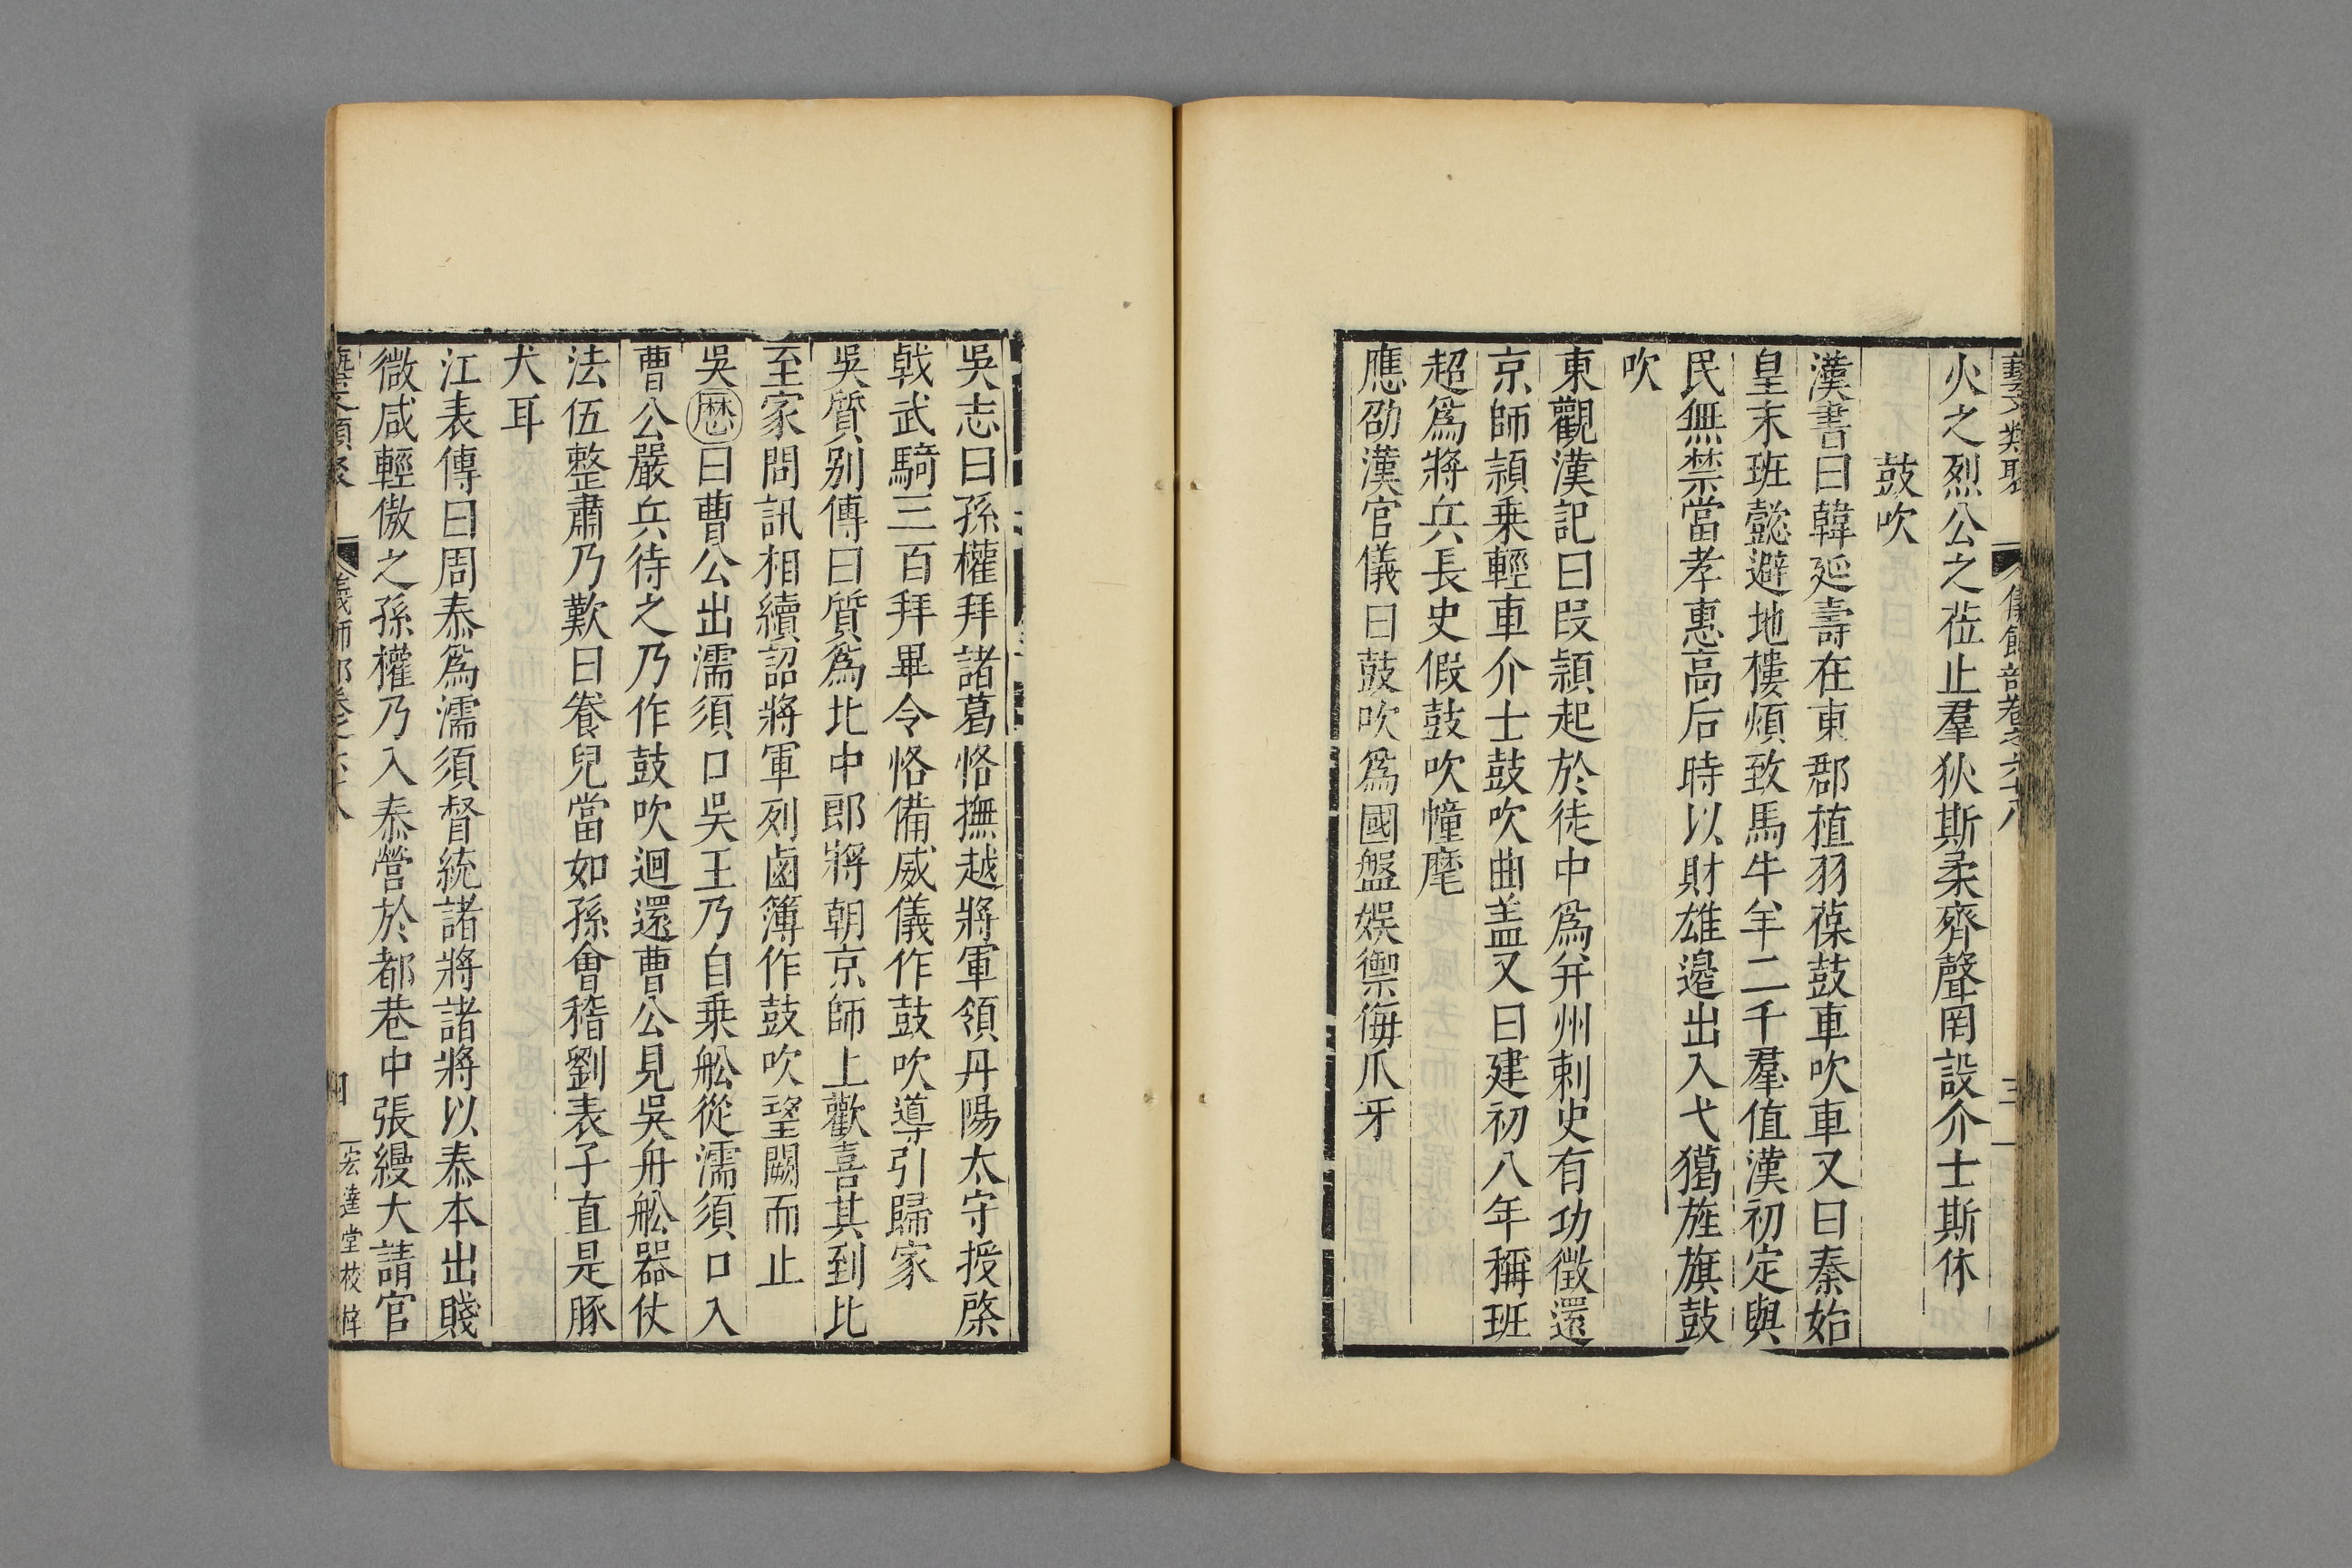 藝文類聚 儀飾部卷之六十八 三
火之烈公之蒞止羣狄斯柔齊聲罔設介士斯休
鼓吹
漢書曰韓延壽在東郡植羽葆鼓車吹車又曰秦始
皇末班懿避地樓煩致馬牛羊二千羣值漢初定與
民無禁當孝惠高后時以財雄邉出入弋獵旌旗鼓
吹
東觀漢記曰叚熲起於徒中爲并州刺史有功徵還
京師熲乗輕車介士鼓吹曲盖又曰建初八年稱班
超爲將兵長史假鼓吹幢麾
應劭漢官儀曰鼓吹爲國盤娯禦侮爪牙
吳志曰孫權拜諸葛恪撫越將軍領丹陽太守授棨
戟武騎三百拜畢令恪備威儀作鼓吹導引歸家
吳質别傳曰質爲北中郎將朝京師上歡喜其到比
至家問訊相續詔將軍列鹵簿作鼓吹望闕而止
吳歷曰曹公出濡須口吳王乃自乗舩從濡須口入
曹公嚴兵待之乃作鼓吹迴還曹公見吳舟舩器仗
法伍整肅乃歎曰養兒當如孫會稽劉表子直是豚
犬耳
江表傳曰周泰爲濡須督統諸將諸將以泰本出賤
微咸輕傲之孫權乃入泰營於都巷中張縵大請官
四 宏達堂校梓